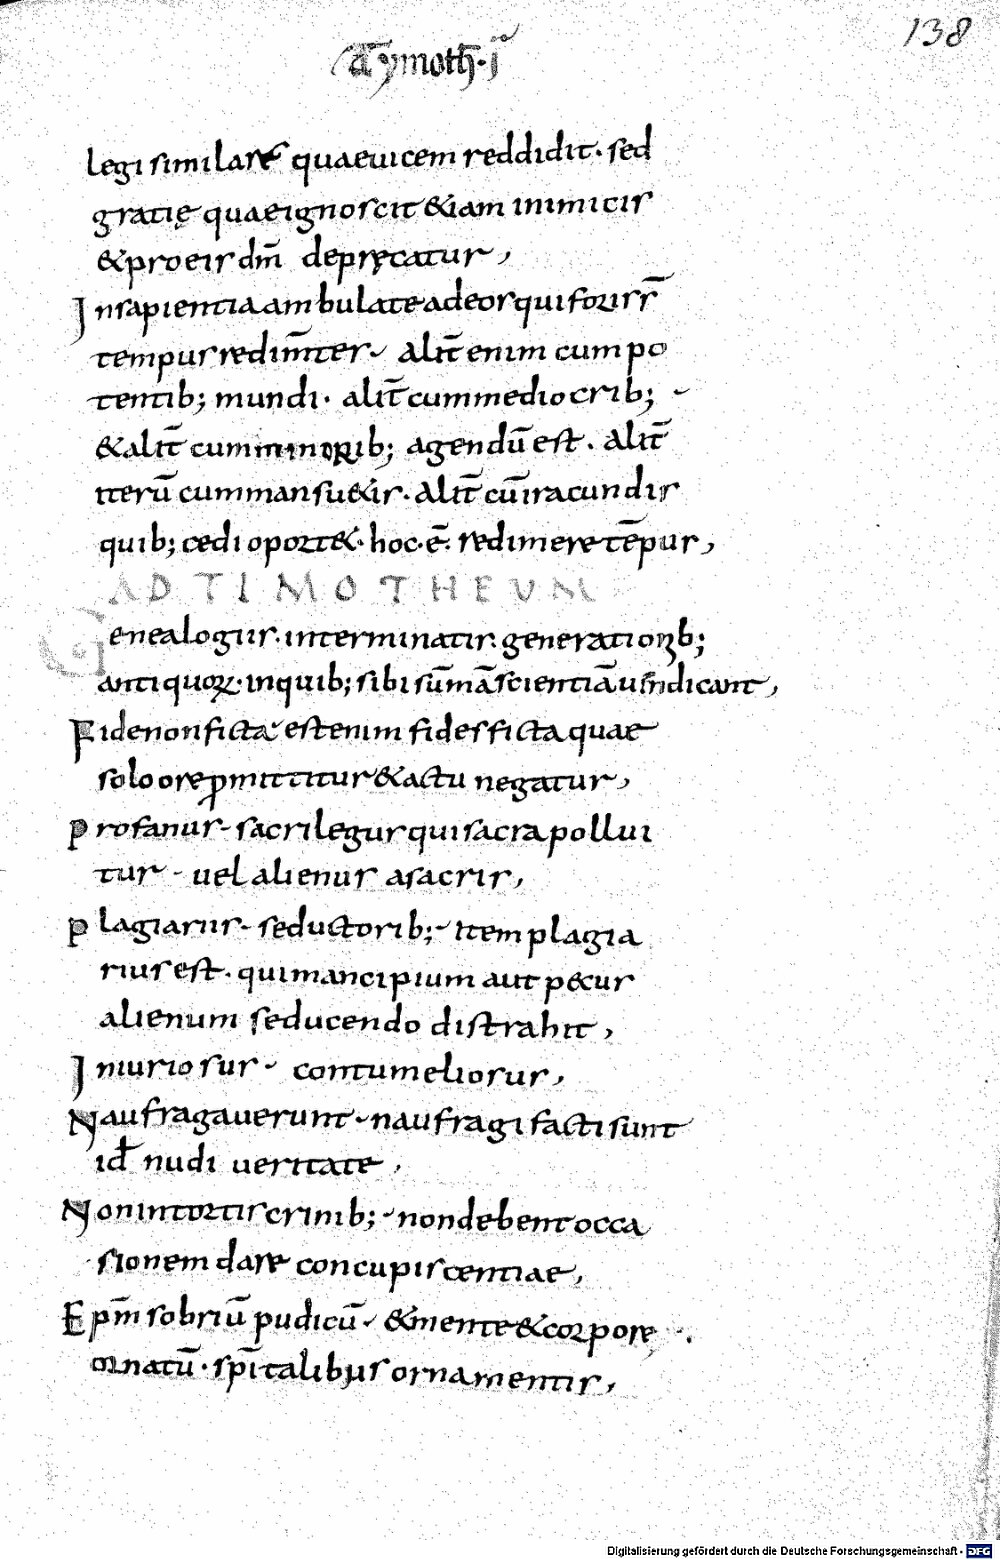 138
Tymoth̄·i
legi similare quaeuicem reddidit· sed
gratię quaeignoscit &iam inimicis
&proeis dm̄ depręcatur,
Insapientiaambulateadeosquiforis s̄
tempusredim̄tes· alit̄ enim cumpo
tentib; mundi· alit̄ cummediocrib;
&alit̄ cumminorib; agendū est. alit̄
iterū cummansu&is· alit̄ cūiracundis
quib; cedi oport&· hoc·ē· redimeretēpus,
AD TIMOTHEUM
Genealogiis·interminatis·generationib;
antiquoꝝ·inquib; sibi sūmāscientiāuindicant,
Fidenonficta· estenim fidesficta quae
soloorepmittitur &actu negatur,
Profanus- sacrilegusquisacrapollui
tur - uel alienus asacris,
Plagiariis- seductorib;- Item plagia
rius est· quimancipium aut pecus
alienum seducendo distrahit,
Iniuriosus- contumeliosus,
Naufragauerunt-naufragi facti sunt
id̄ nudi ueritate,
Nonintortiscrinib;-nondebentocca
sionem dare concupiscentiae,
Epm̄ sobriū pudicū- &mente&corpore
ornatū· spi̅talibus ornamentis,
Digitalisierung gefördert durch die Deutsche Forschungsgemeinschaft - DFG